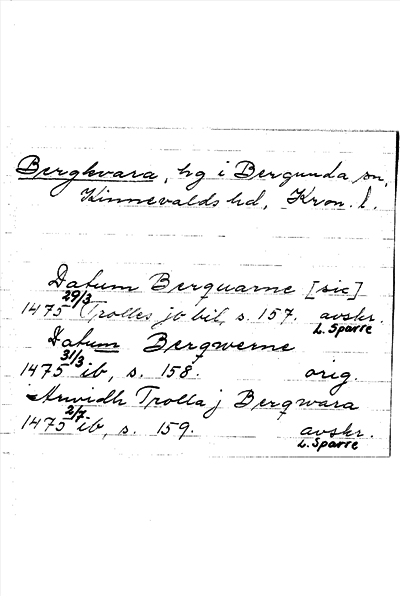 Bergkvara, hg i Bergunda sn,
Kinnevalds hd, Kron. l.
Datum Berquarne [sic]
1475 29/3 Trolles jb bil, s. 157. avskr.
L. Sparre
Datum Bergwerne
1475 31/3 ib, s. 158. orig.
Arwidh Trolla j Bergwara
1475 2/7 ib, s. 159. avskr.
L. Sparre